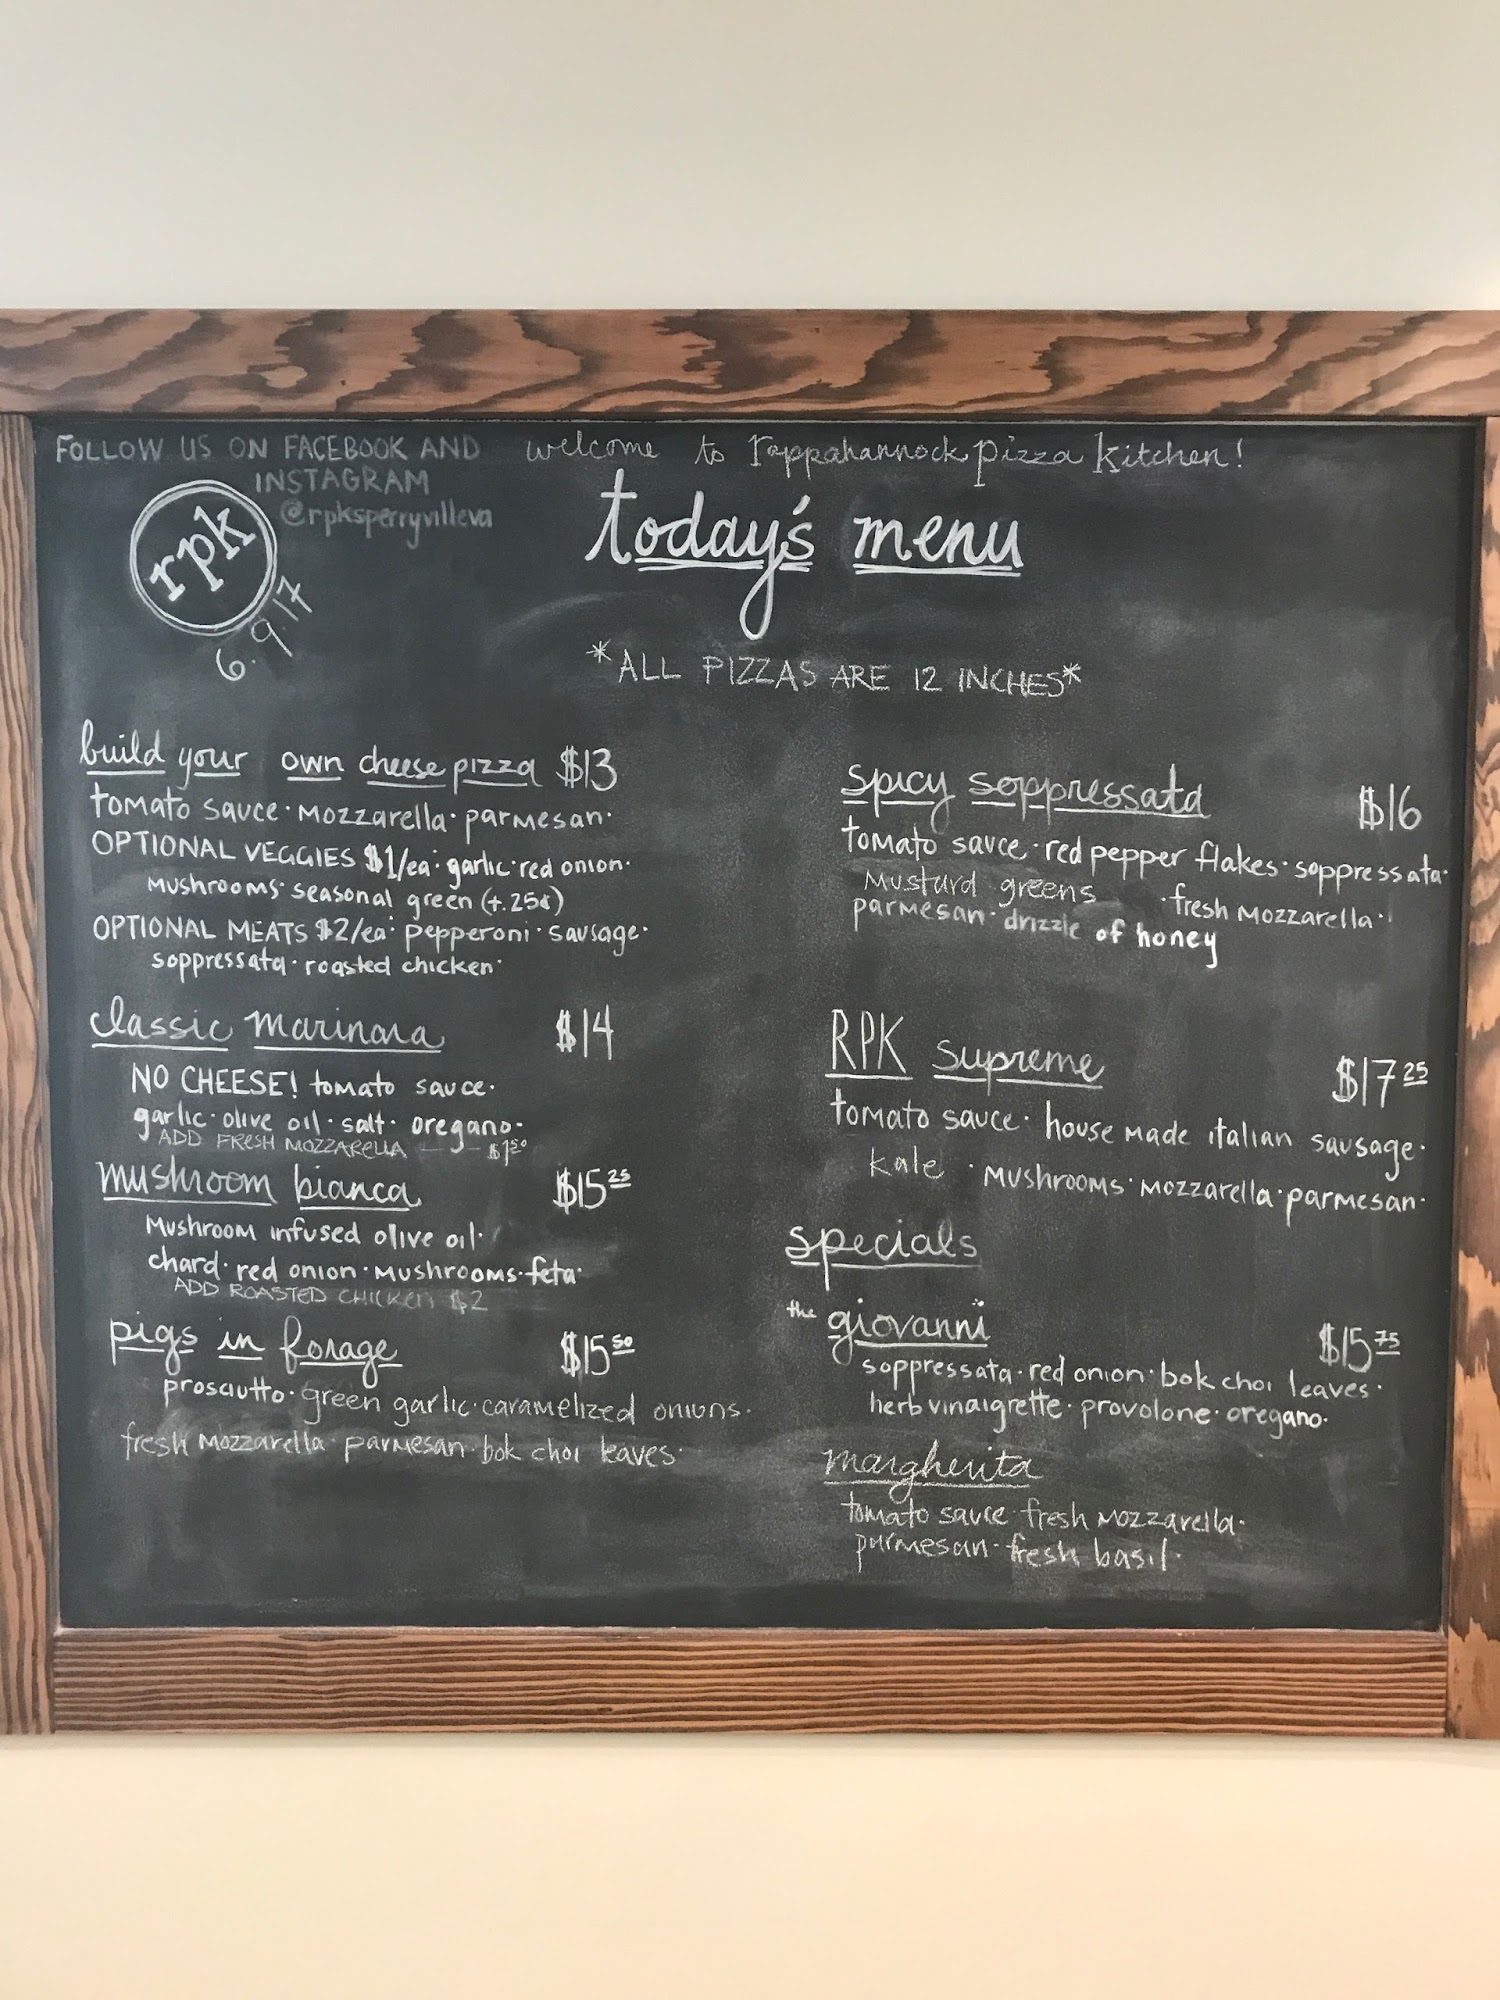 FOLLOW US ON FACEBOOK AND
INSTAGRAM
@rpksperryvilleva
rpk
6.9.17
welcome to rappahannock pizza kitchen!
today's menu
*ALL PIZZAS ARE 12 INCHES*
build your own cheese pizza $13
tomato sauce · mozzarella · parmesan ·
OPTIONAL VEGGIES $1/ea: garlic · red onion ·
mushrooms · seasonal green (+.25¢)
OPTIONAL MEATS $2/ea: pepperoni · sausage ·
soppressata · roasted chicken ·
classic marinara $14
NO CHEESE! tomato sauce ·
garlic · olive oil · salt · oregano ·
ADD FRESH MOZZARELLA — – $1.50
mushroom bianca $15 25
mushroom infused olive oil ·
chard · red onion · mushrooms · feta ·
ADD ROASTED CHICKEN $2
pigs in forage $15 50
prosciutto · green garlic · caramelized onions ·
fresh mozzarella · parmesan · bok choi leaves ·
spicy soppressata $16
tomato sauce · red pepper flakes · soppressata ·
mustard greens · fresh mozzarella ·
parmesan · drizzle of honey
RPK supreme $17 25
tomato sauce · house made italian sausage ·
kale · mushrooms · mozzarella · parmesan ·
specials
the giovanni $15 75
soppressata · red onion · bok choi leaves ·
herb vinaigrette · provolone · oregano ·
margherita
tomato sauce · fresh mozzarella ·
parmesan · fresh basil ·